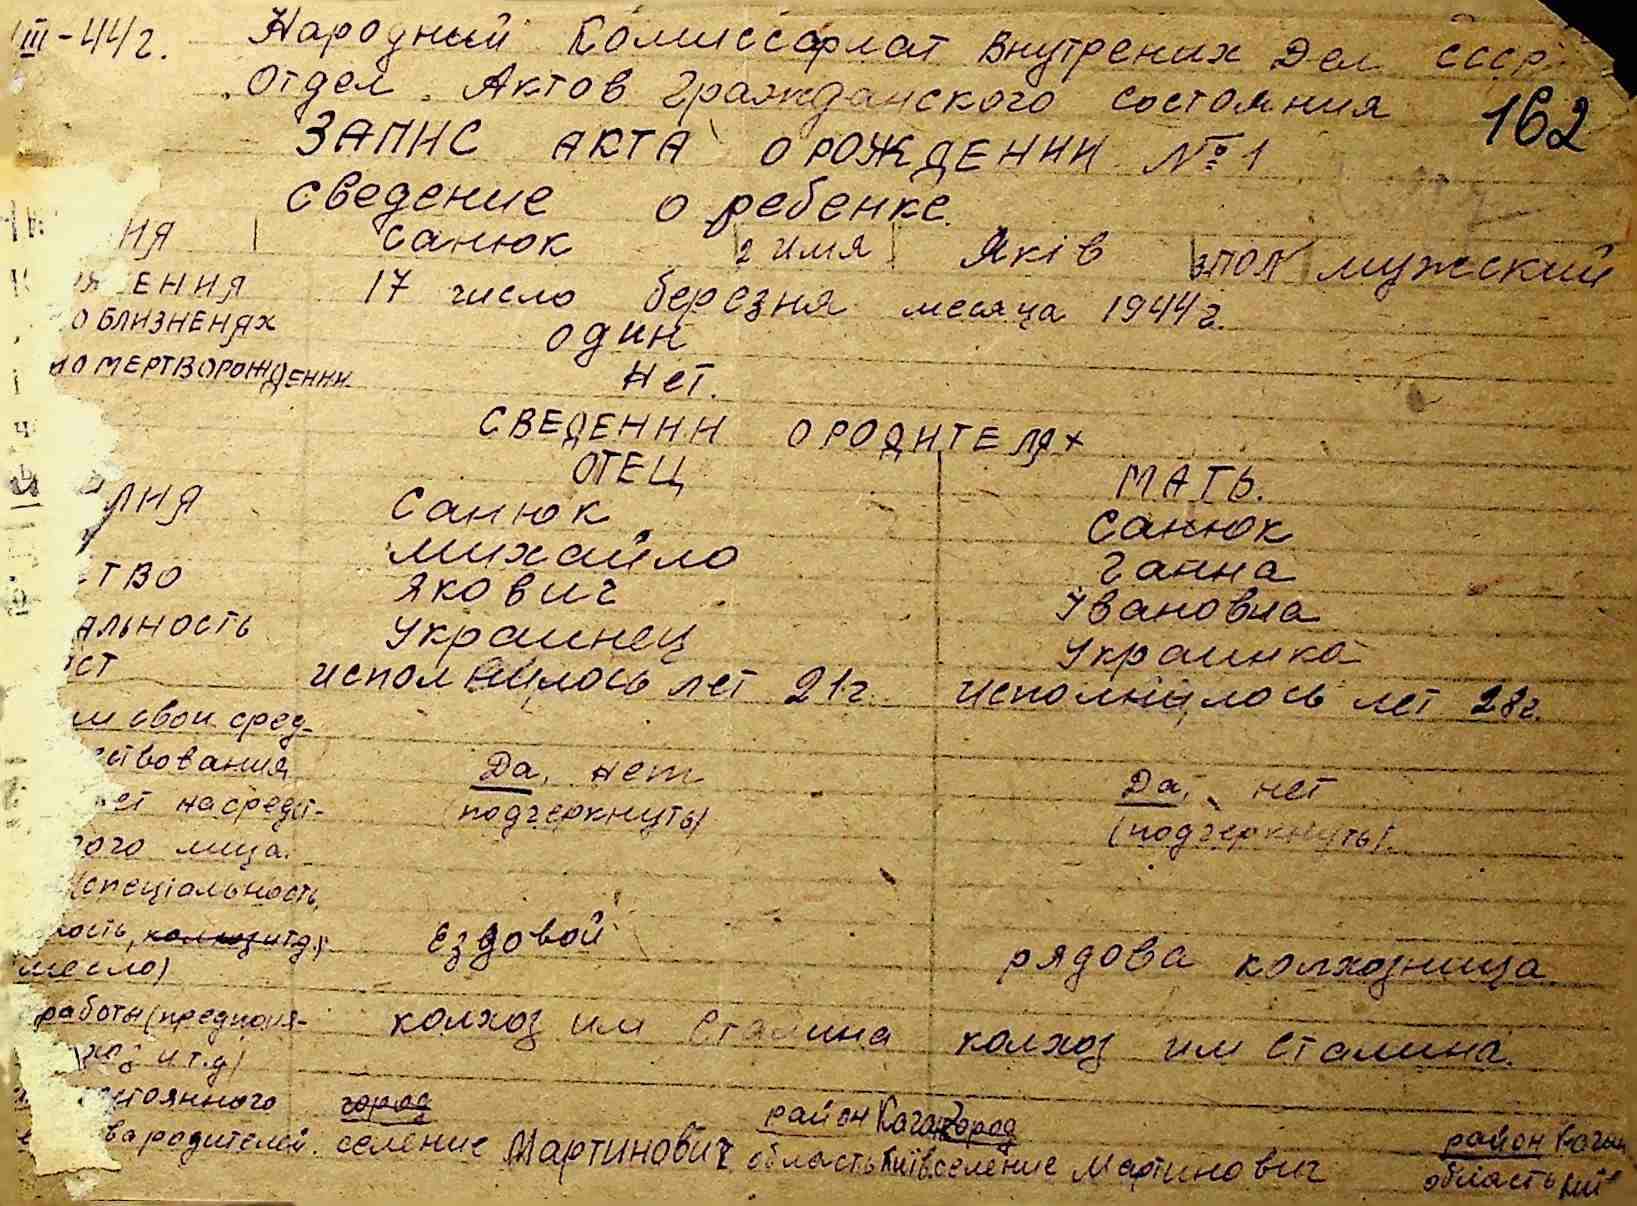 III-44г. Народный Комиссариат Внутрених Дел СССР.
Отдел Актов Гражданского состояния 162
ЗАПИС АКТА О РОЖДЕНИИ №1
Сведение о ребенке.
ИЯ Санюк 2 имя Яків 3 ПОЛ мужский
ЕНИЯ 17 число березня месяца 1944г.
О БЛИЗНЕНЯХ один
О МЕРТВОРОЖДЕНИИ Нет.
СВЕДЕНИИ О РОДИТЕЛЯХ
ОТЕЦ МАТЬ.
ЛИЯ Санюк Санюк
Михайло Ганна
СТВО Якович Івановна
АЛЬНОСТЬ Украинец Украинка
СТ исполнилось лет 21г. исполнилось лет 28г.
м свои сред-
ствования Да, нет Да, нет
ет на средст- (подчеркнуть) (подчеркнуть).
гого лица.
(спеціальность,
ность, колхоз итд.) Ездовой рядова колхозница
месло)
работы (предприя- колхоз им Сталина колхоз им Сталина.
и.т.д)
стоянного город район Каган город район Каган
ва родителей. селение Мартинович область Київ селение Мартинович область Киї